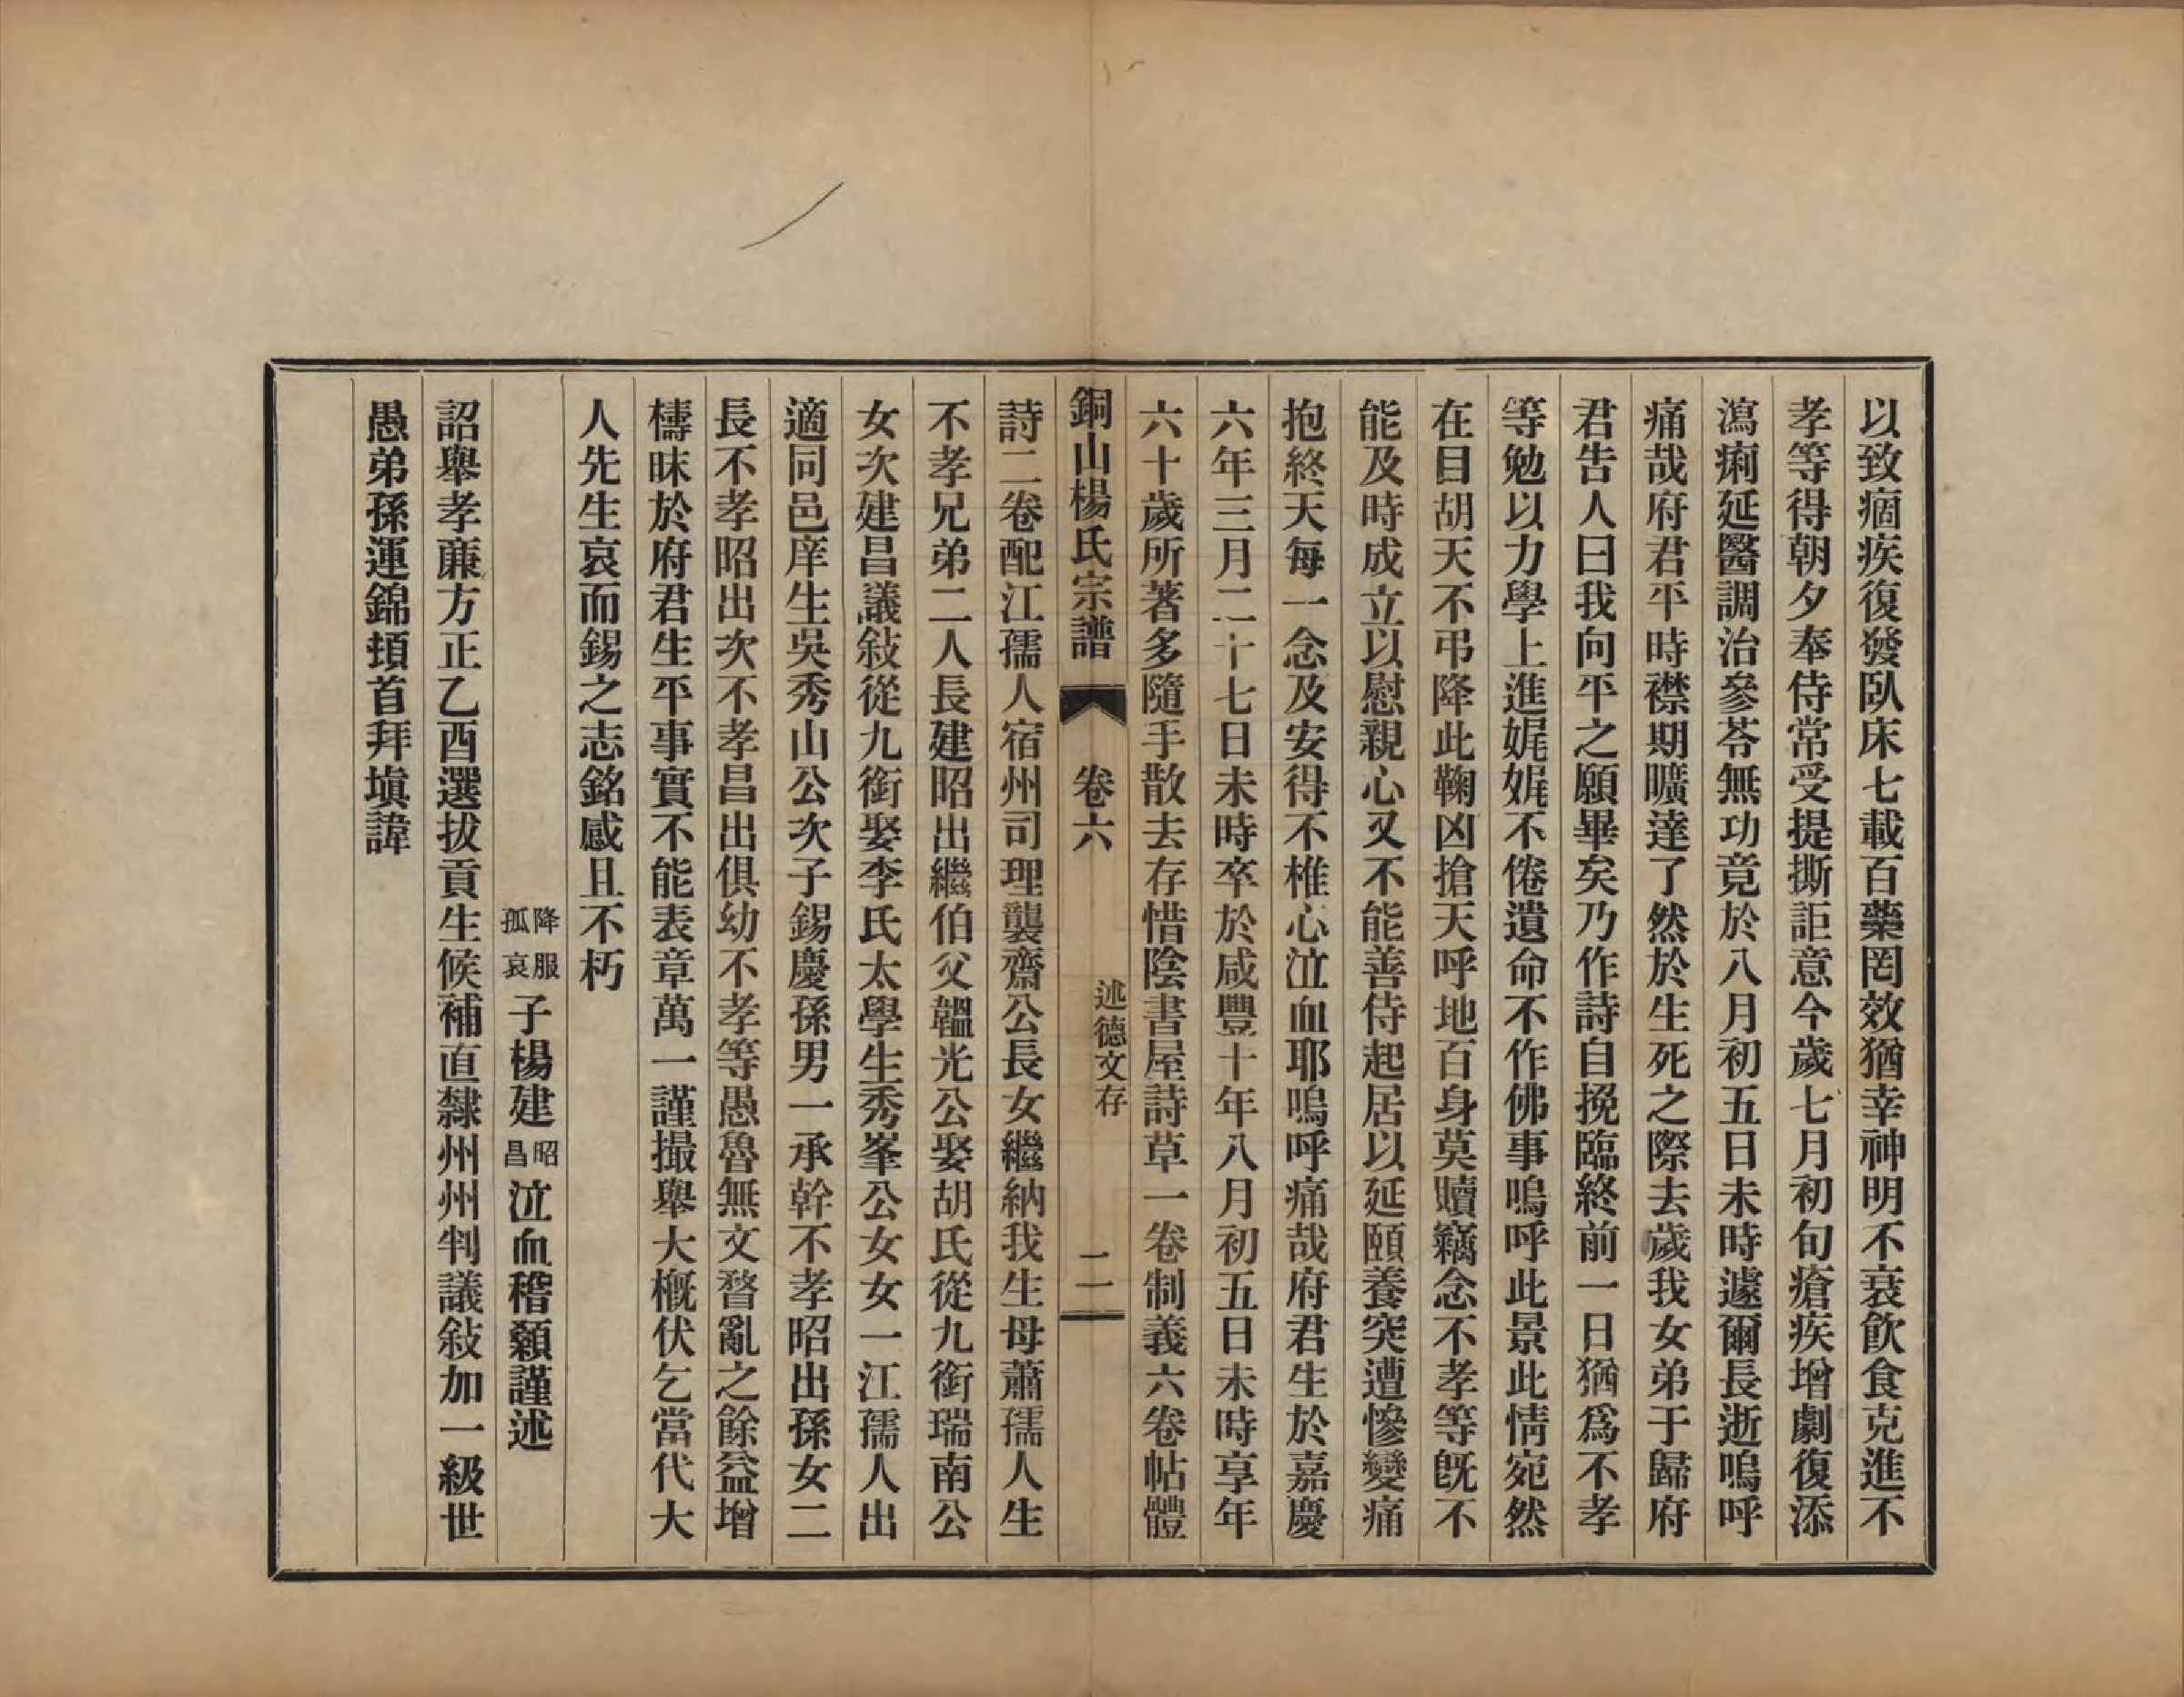 以致痼疾復發臥床七載百藥罔效猶幸神明不衰飲食克進不
孝等得朝夕奉侍常受提撕詎意今歲七月初旬瘡疾增劇復添
瀉痢延醫調治參苓無功竟於八月初五日未時遽爾長逝嗚呼
痛哉府君平時襟期曠達了然於生死之際去歲我女弟于歸府
君告人曰我向平之願畢矣乃作詩自挽臨終前一日猶爲不孝
等勉以力學上進娓娓不倦遺命不作佛事嗚呼此景此情宛然
在目胡天不弔降此鞠凶搶天呼地百身莫贖竊念不孝等既不
能及時成立以慰親心又不能善侍起居以延頤養突遭慘變痛
抱終天每一念及安得不椎心泣血耶嗚呼痛哉府君生於嘉慶
六年三月二十七日未時卒於咸豐十年八月初五日未時享年
六十歲所著多隨手散去存惜陰書屋詩草一卷制義六卷帖體
銅山楊氏宗譜 卷六 述德文存 二
詩二卷配江孺人宿州司理襲齋公長女繼納我生母蕭孺人生
不孝兄弟二人長建昭出繼伯父韞光公娶胡氏從九銜瑞南公
女次建昌議敍從九銜娶李氏太學生秀峯公女女一江孺人出
適同邑庠生吳秀山公次子錫慶孫男一承幹不孝昭出孫女二
長不孝昭出次不孝昌出俱幼不孝等愚魯無文瞀亂之餘益增
檮昧於府君生平事實不能表章萬一謹撮舉大概伏乞當代大
人先生哀而錫之志銘感且不朽
降服孤哀子楊建昭昌泣血稽顙謹述
詔舉孝廉方正乙酉選拔貢生候補直隸州州判議敍加一級世
愚弟孫運錦頓首拜塡諱